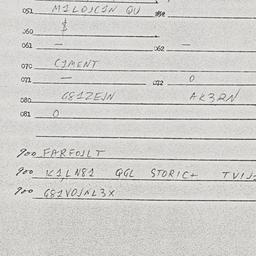 051 M1LOJC1N QU
060 $
061 — 062 —
070 C1MENT
071 — 072 0
080 G81ZEJN AK3RN
081 0
900 FARFOJLT
900 K1,LN81 QGL STORIC+ TVIJ
900 G81VOJAL3X